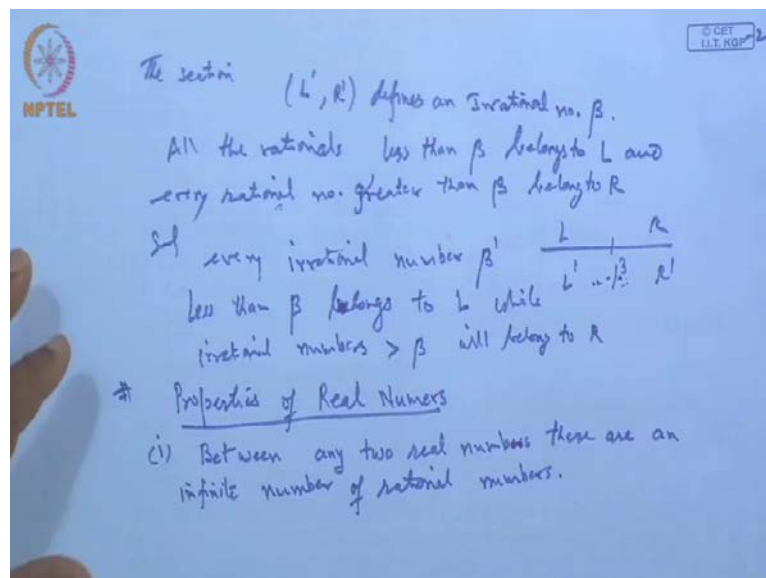 © CET
I.I.T. KGP
NPTEL
The section (L', R') defines an Irrational no. β.
All the rationals less than β belongs to L and
every rational no. greater than β belong to R
every irrational number β'
L R
L' β R'
less than β belongs to L while
irrational numbers > β will belong to R
# Properties of Real Numers
(i) Between any two real numbers there are an
infinite number of rational numbers.